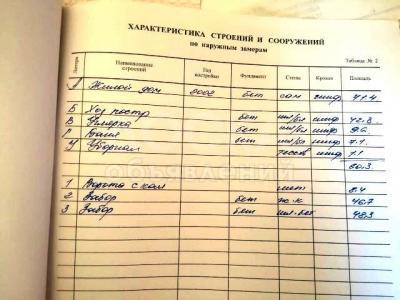 ХАРАКТЕРИСТИКА СТРОЕНИЙ И СООРУЖЕНИЙ
по наружным замерам
Таблица № 2
Литера Наименование строений Год постройки Фундамент Стены Кровля Площадь
А Жилой дом 2002 бет сам шиф 71.4
Б Хоз постр бет шл/бл шиф 42.8
В бет шл/бл шиф
Г Баня бет шл/бл шиф 7.1
У Уборная тесов шиф 1.1
1 Ворота с кал мет 8.4
2 Забор бет ж.к 46.7
3 Забор бет шл.бет 48.3
ОБЪЯВЛЕНИЙ